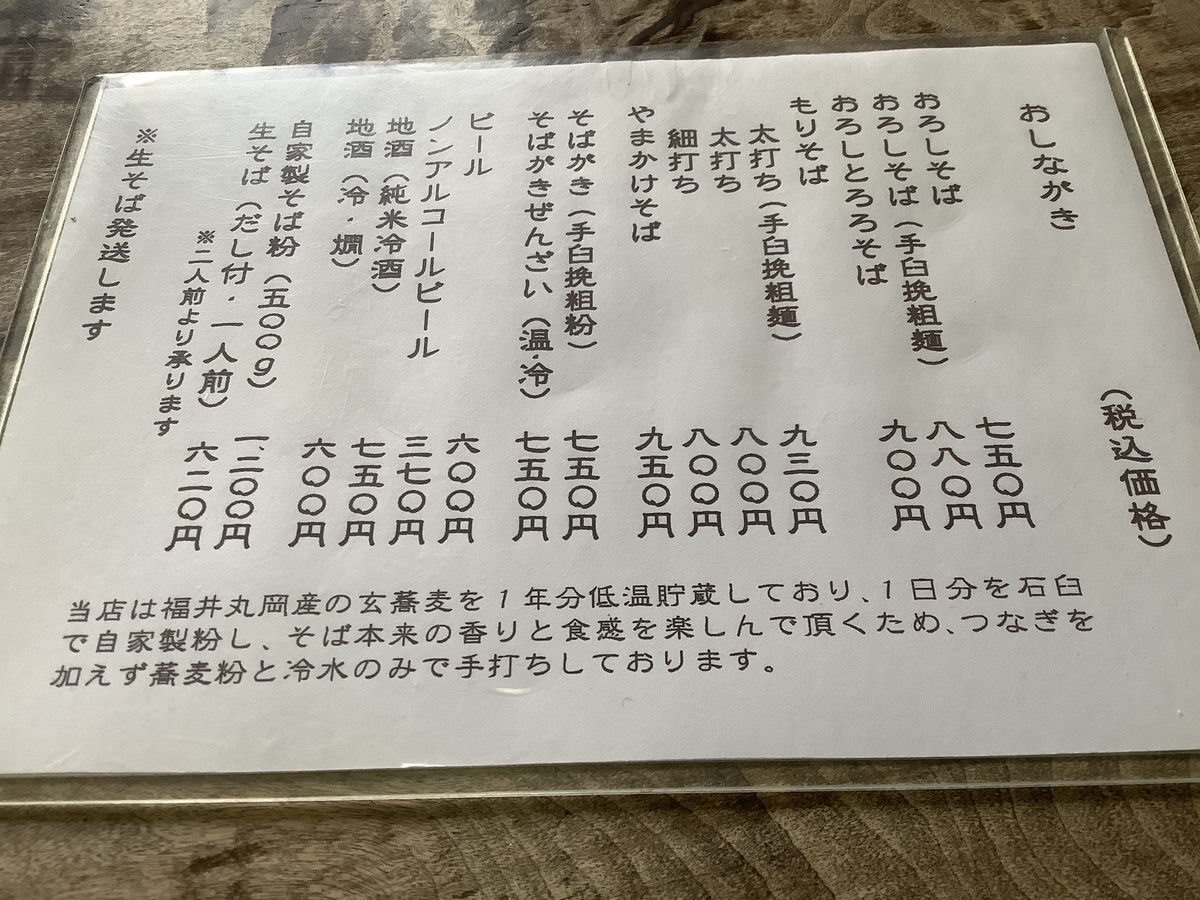 おしながき
（税込価格）
おろしそば 七五〇円
おろしそば（手臼挽粗麺） 八八〇円
おろしとろろそば 九〇〇円
もりそば
太打ち（手臼挽粗麺） 九三〇円
太打ち 八〇〇円
細打ち 八〇〇円
やまかけそば 九五〇円
そばがき（手臼挽粗粉） 七五〇円
そばがきぜんざい（温・冷） 七五〇円
ビール 六〇〇円
ノンアルコールビール 三七〇円
地酒（純米冷酒） 七五〇円
地酒（冷・燗） 六〇〇円
自家製そば粉（五〇〇g） 一、二〇〇円
生そば（だし付・一人前） 六二〇円
※二人前より承ります
※生そば発送します
当店は福井丸岡産の玄蕎麦を１年分低温貯蔵しており、１日分を石臼
で自家製粉し、そば本来の香りと食感を楽しんで頂くため、つなぎを
加えず蕎麦粉と冷水のみで手打ちしております。